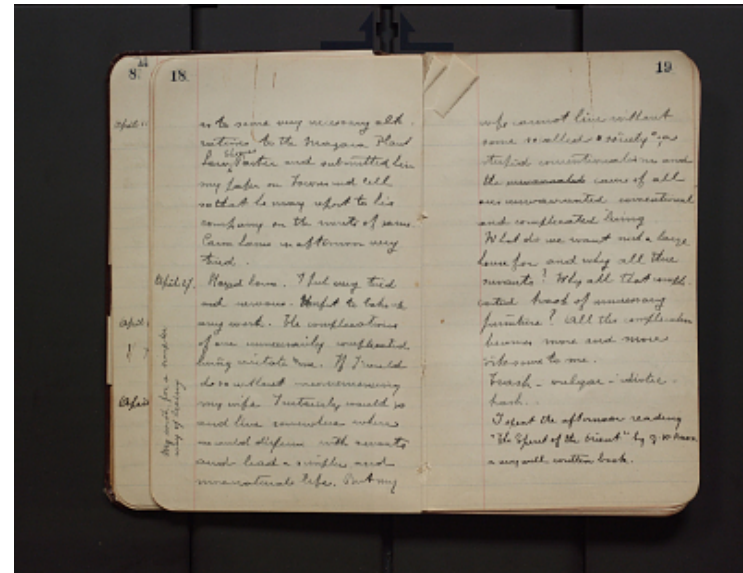 8
18
April
as to some very necessary alt-
erations to the Niagara Plant
Saw Shores
Porter and submitted him
my paper on Townsend Cell
so that he may report to his
company on the merits of same.
Came home in afternoon very
tired.
April 27. Stayed home. I feel very tired
and nervous. Unfit to take up
any work. The complications
of our unnecessarily complicated
living irritate me. If I could
do so without inconveniencing
my wife I certainly would go
and live somewhere where
we could dispense with servants
and lead a simpler and
more natural life. But my
My wish for a simpler
way of living
April
April
19
wife cannot live without
some so called "society" or
stupid conventionalisms and
the unwarranted cause of all
our unwarranted conventional
and complicated living
What do we want with a large
house for and why all these
servants? Why all that compli-
cated trash of unnecessary
furniture? All this complication
becomes more and more
irksome to me.
Trash - vulgar - idiotic -
trash.
I spent the afternoon reading
"The Spirit of the Orient" by G. W. Knox
a very well written book.